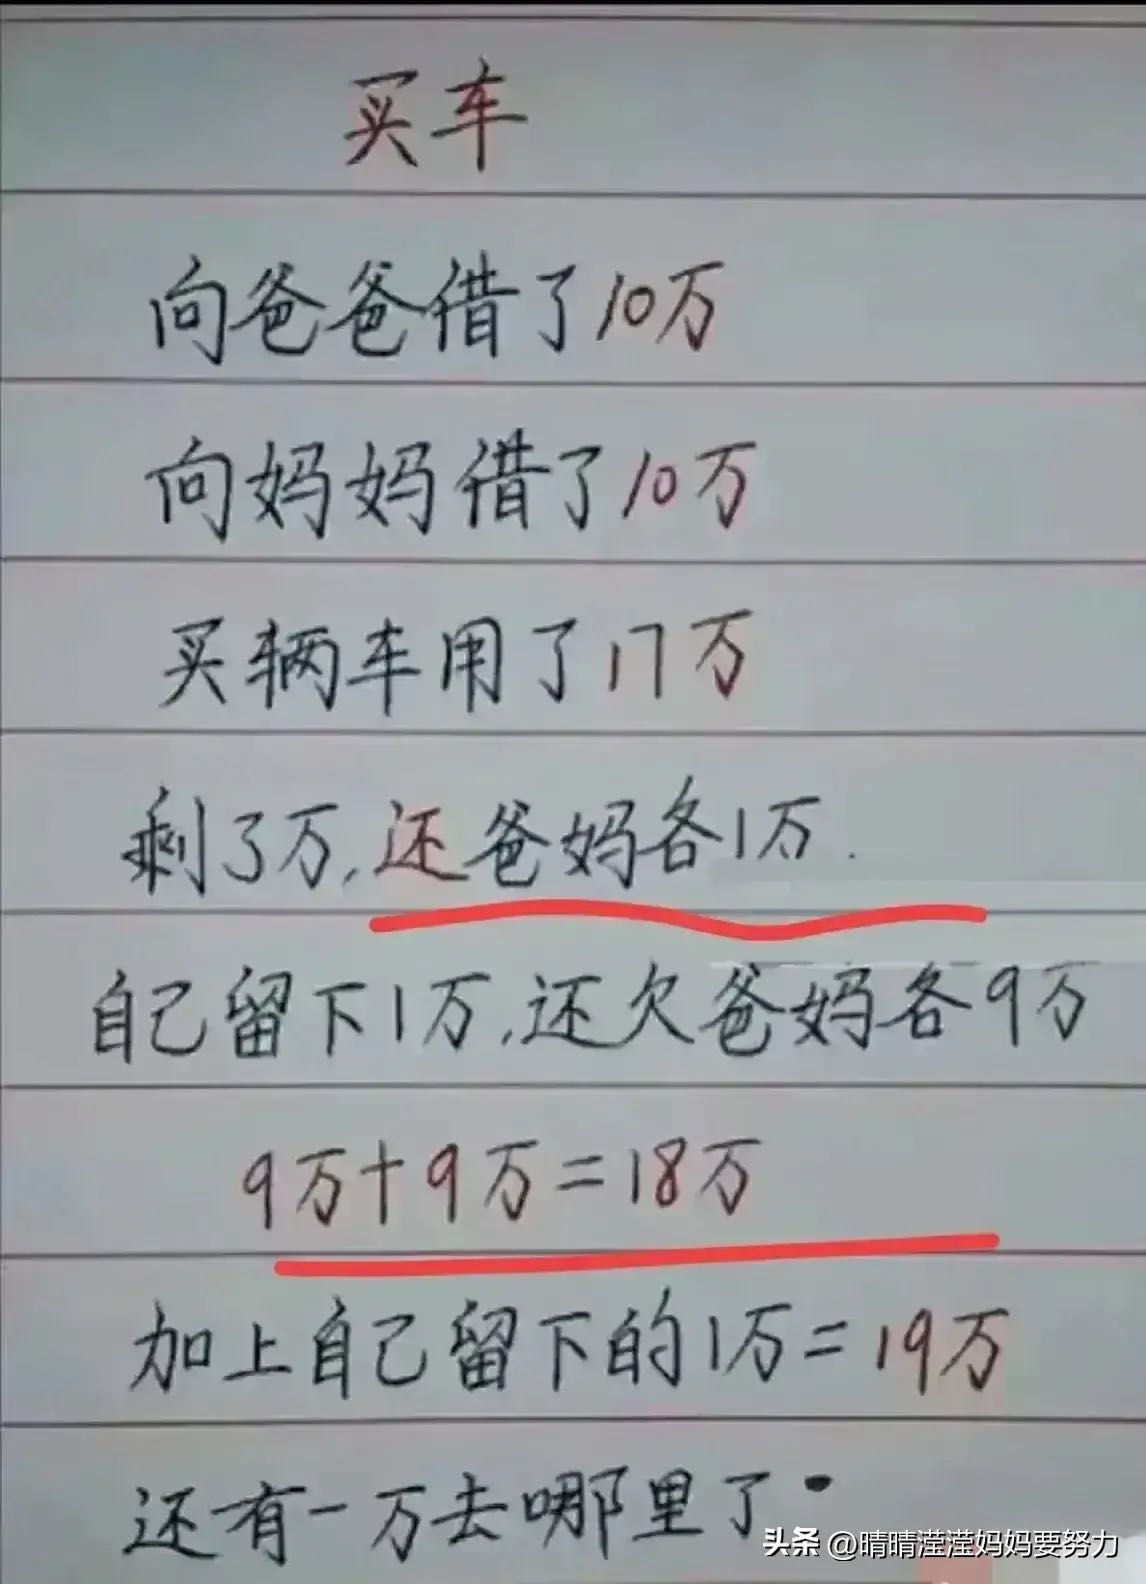 买车
向爸爸借了10万
向妈妈借了10万
买辆车用了17万
剩了万,还爸妈各1万.
自己留下1万,还欠爸妈各9万
9万+9万=18万
加上自己留下的1万=19万
还有一万去哪里了
头条 @晴晴滢滢妈妈要努力